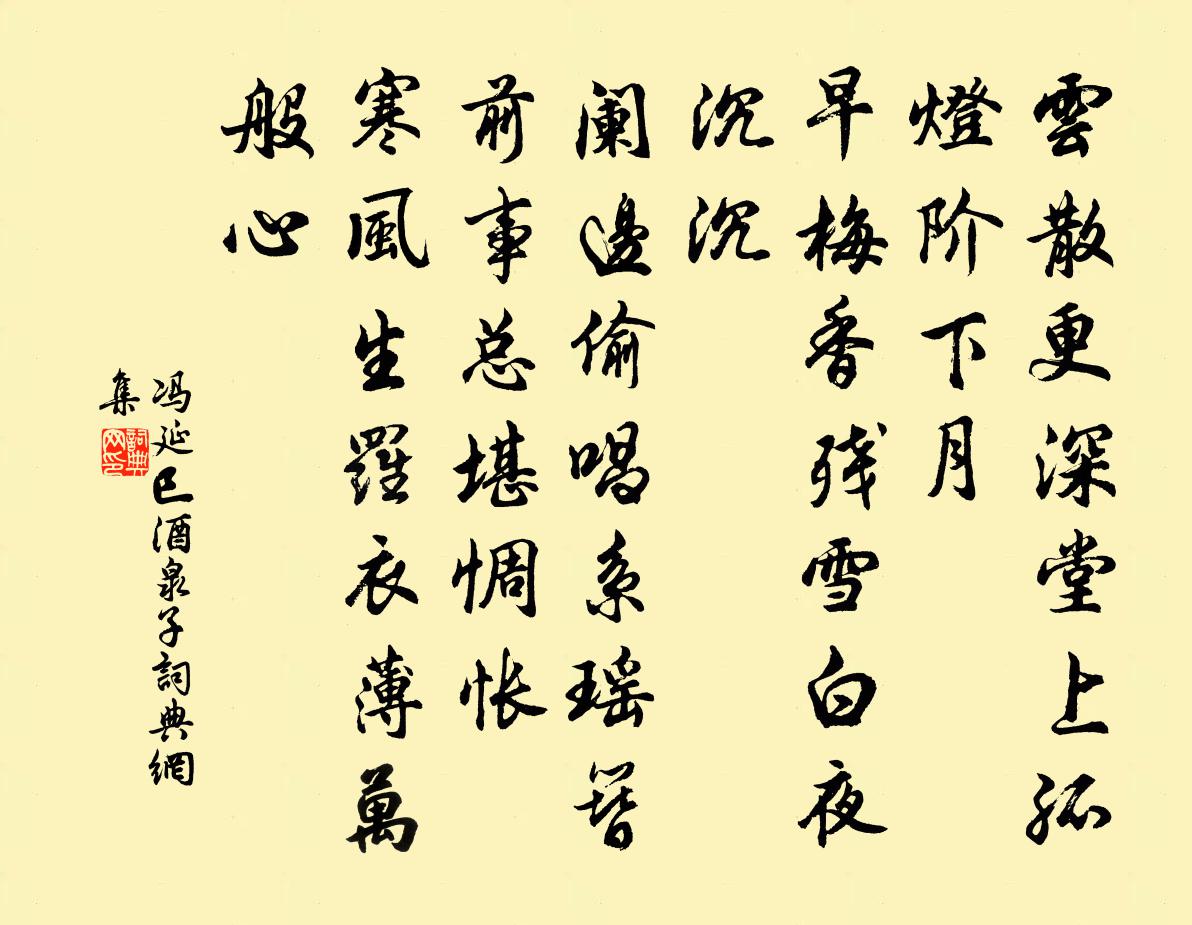 雲散更深堂上孤
燈阶下月
早梅香残雪白夜
沉沉
阑邊偷唱系瑶簪
前事总堪惆怅
寒風生羅衣薄萬
般心
冯延巳酒泉子詞典網
集
詞典网印